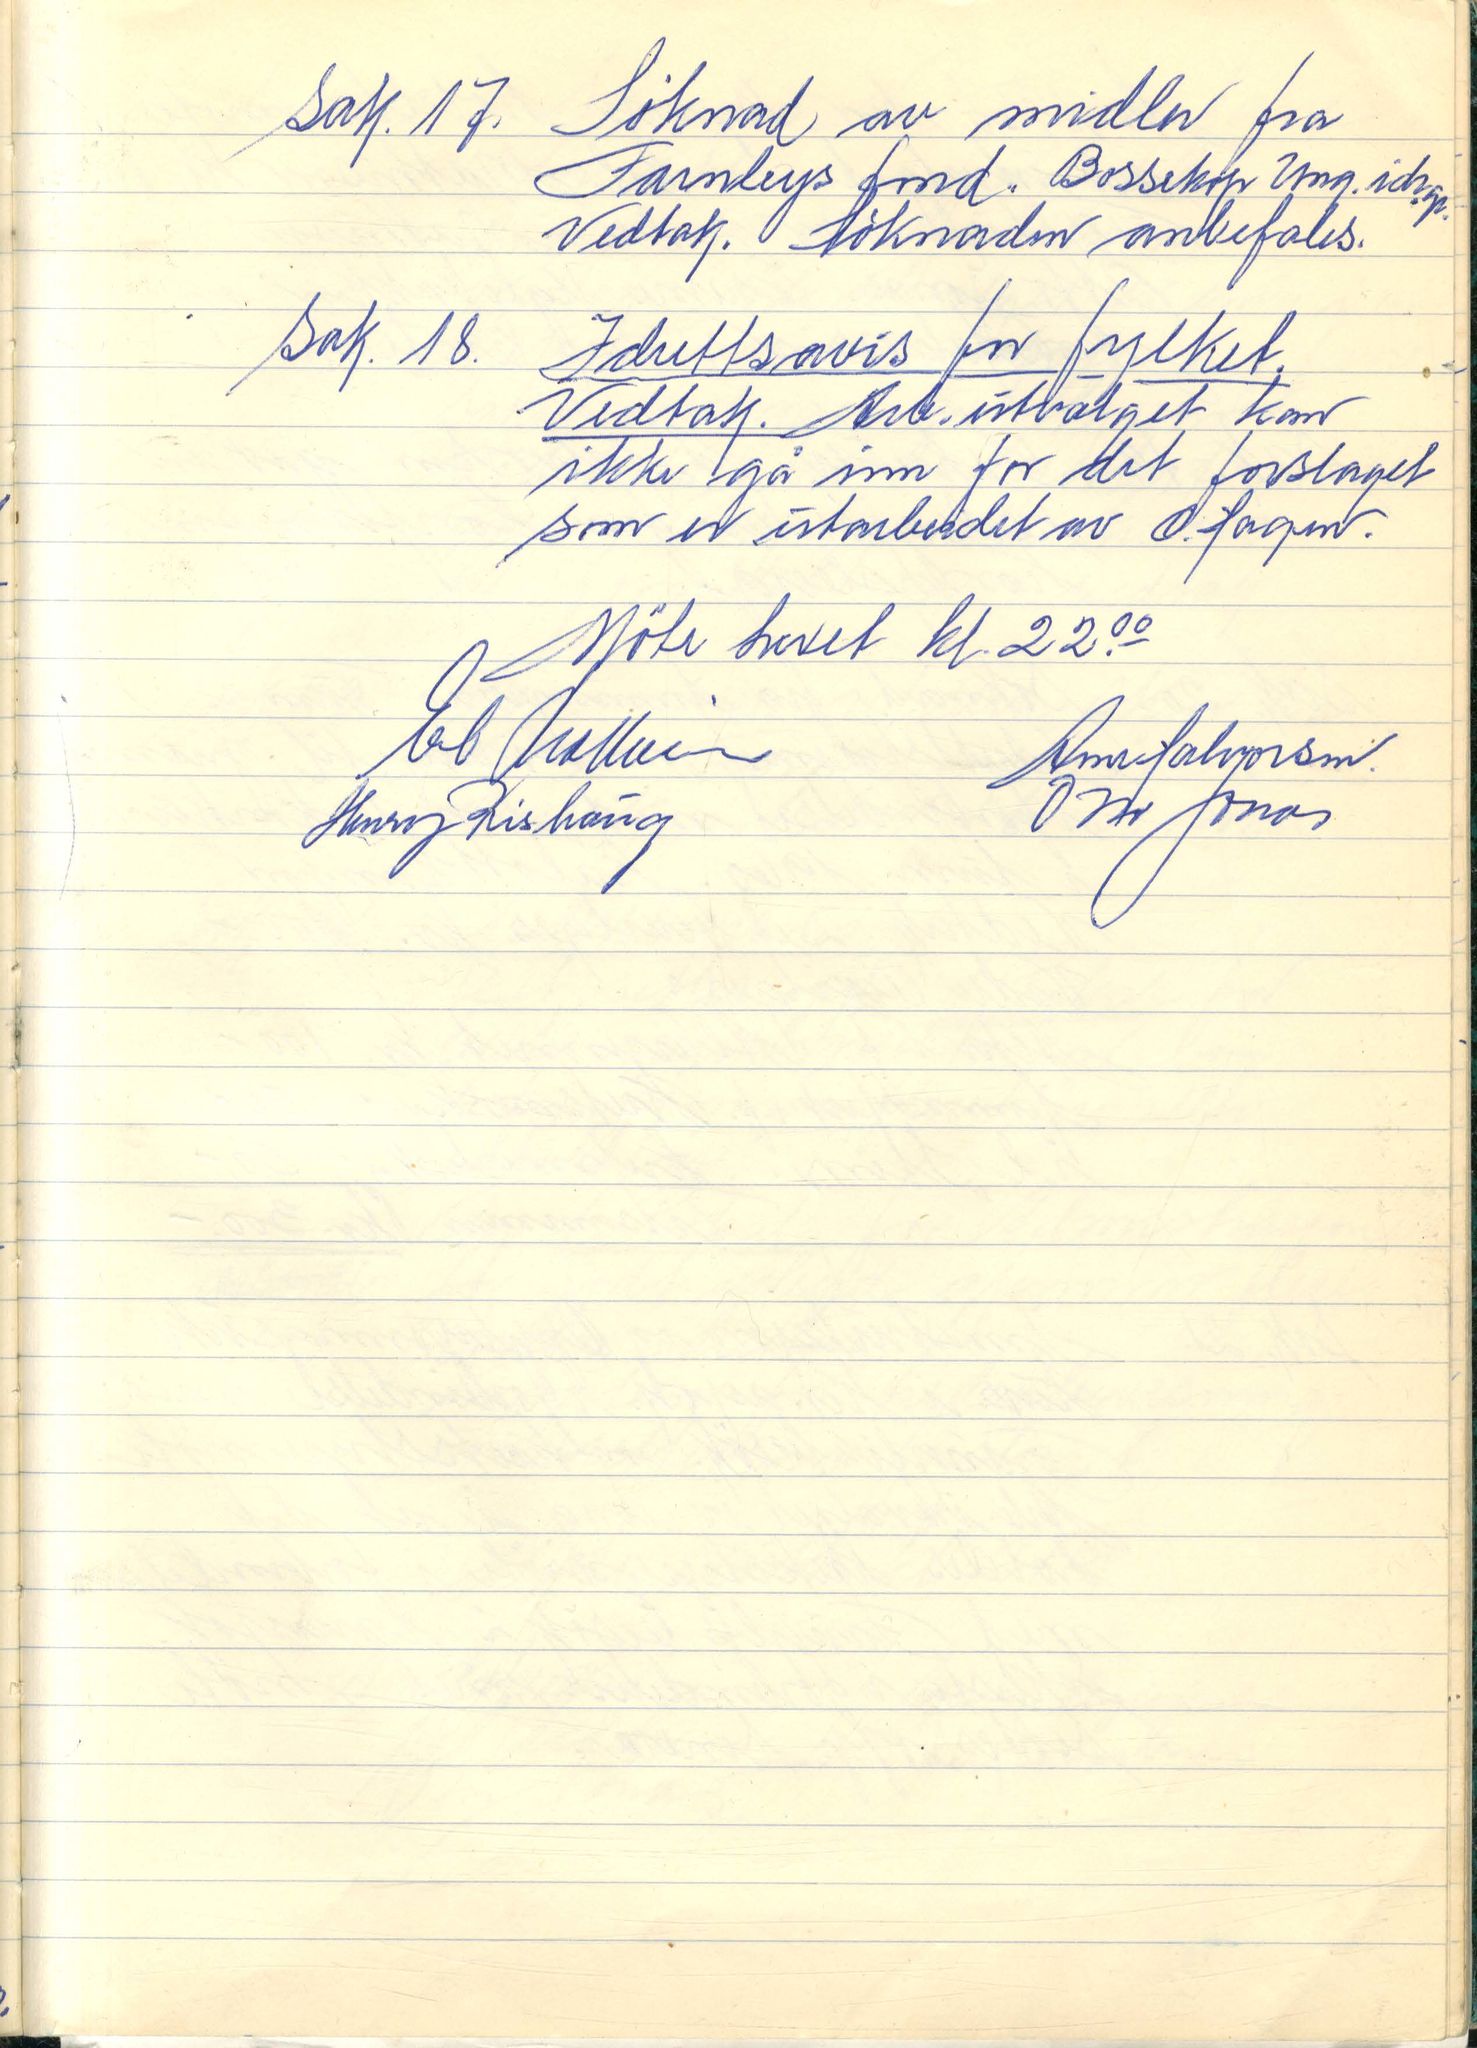 Sak. 17. Söknad av midler fra
Farnleys fond. Bossekop Ung. idr.gr.
Vedtak. Söknaden anbefales.
Sak. 18. Idrettsavis for fylket.
Vedtak. Arb. utvalget kan
ikke gå inn for det forslaget
som er utarbeidet av O. Hagen.
Möte hevet kl. 22.00
Arne Halvorsen.
Henry Rishaug